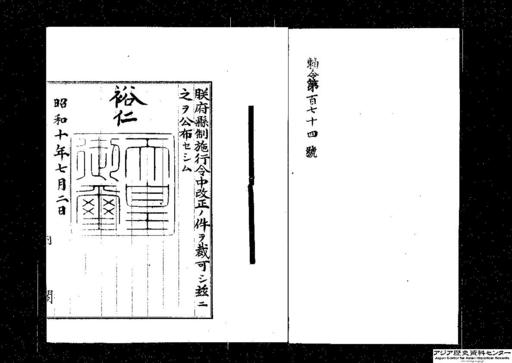 勅令第百七十四號
朕府縣制施行令中改正ノ件ヲ裁可シ茲ニ
之ヲ公布セシム
裕仁
天皇御璽
昭和十年七月二日
内閣
アジア歴史資料センター
Japan Center for Asian Historical Records